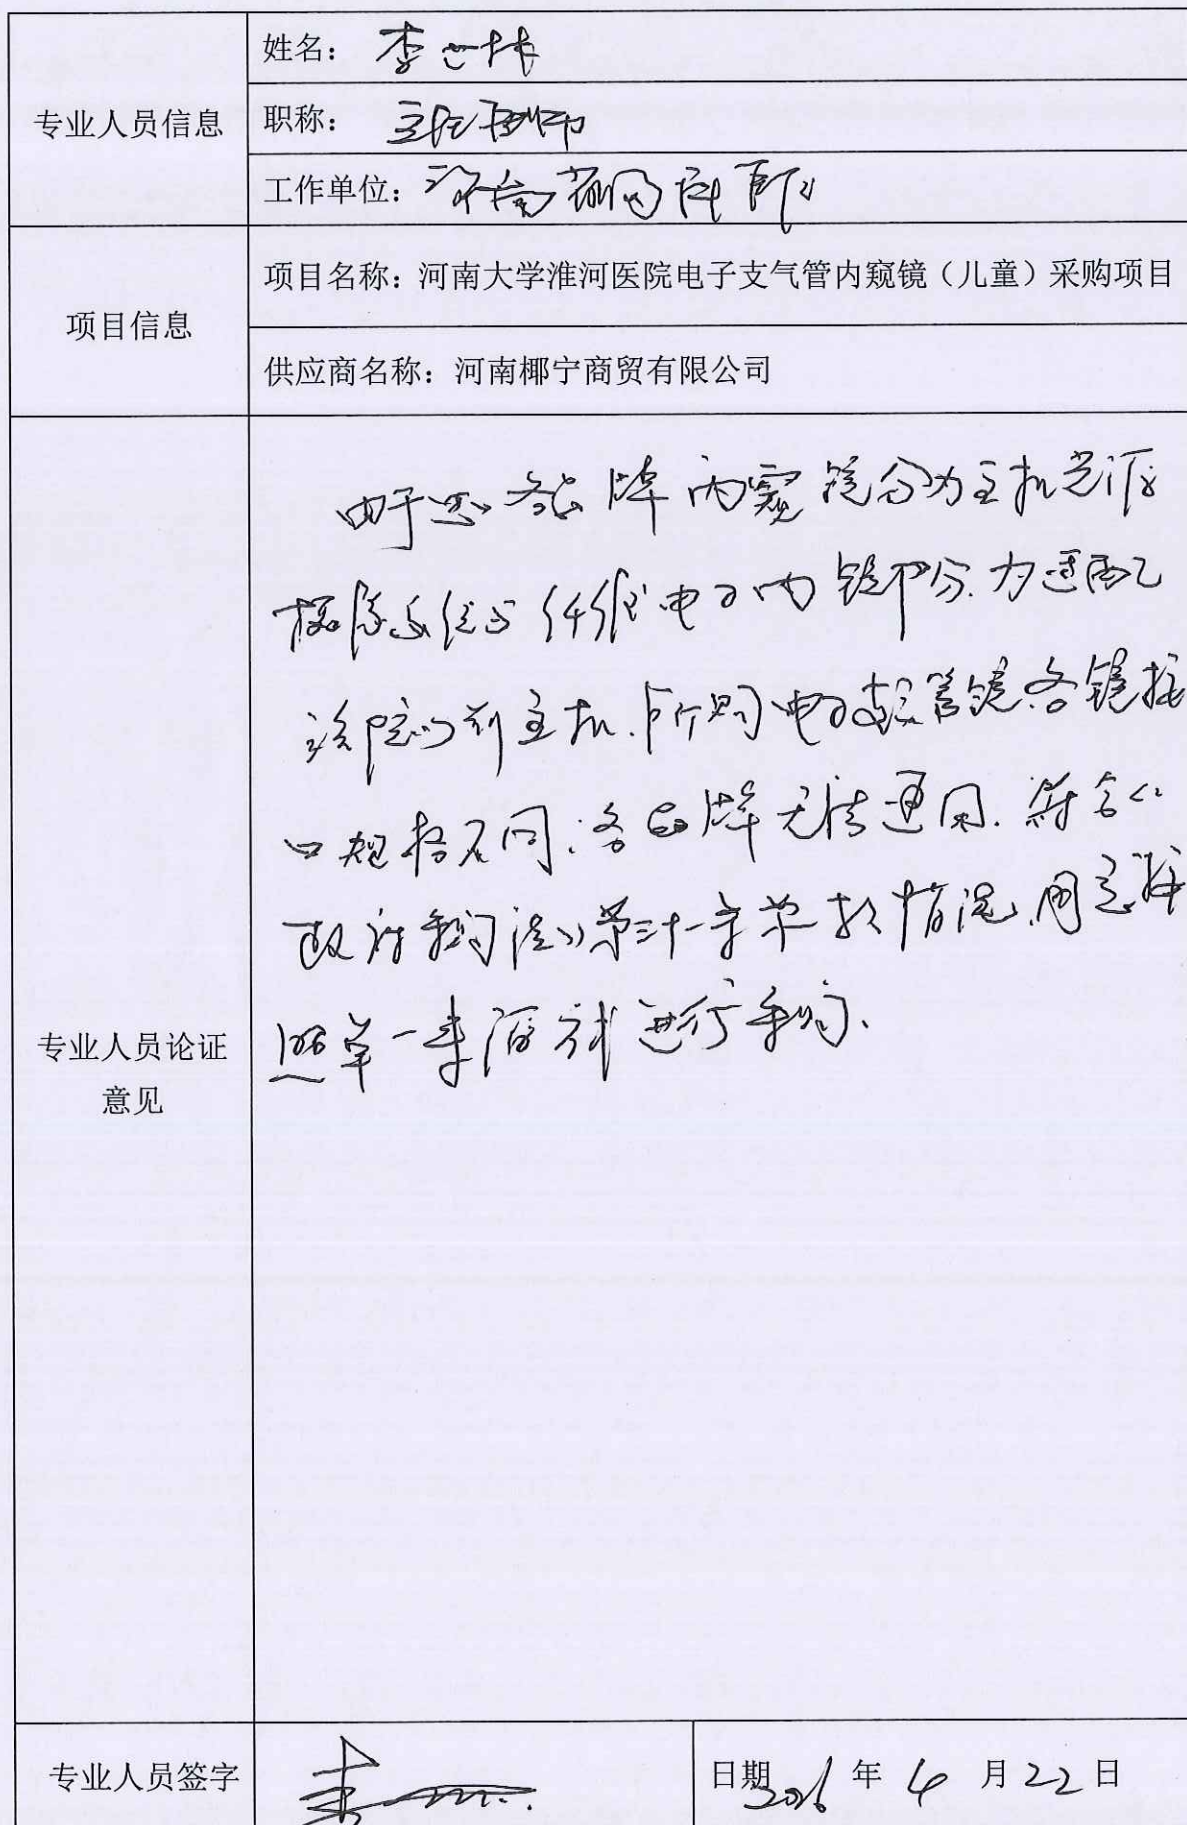 专业人员信息
姓名：李世林
职称：主任医师
工作单位：河南省 医院
项目信息
项目名称：河南大学淮河医院电子支气管内窥镜（儿童）采购项目
供应商名称：河南椰宁商贸有限公司
专业人员论证
意见
由于 各品牌内窥镜分为主机光源
摄像系统与纤维电子内镜部分.为适配
该院 主机.所购电子支气管镜各镜接
口规格不同.各品牌无法通用.符合《
政府采购法》第三十一条第 款情况,同意按
照单一来源方式进行采购.
专业人员签字
日期 年 4 月 22 日